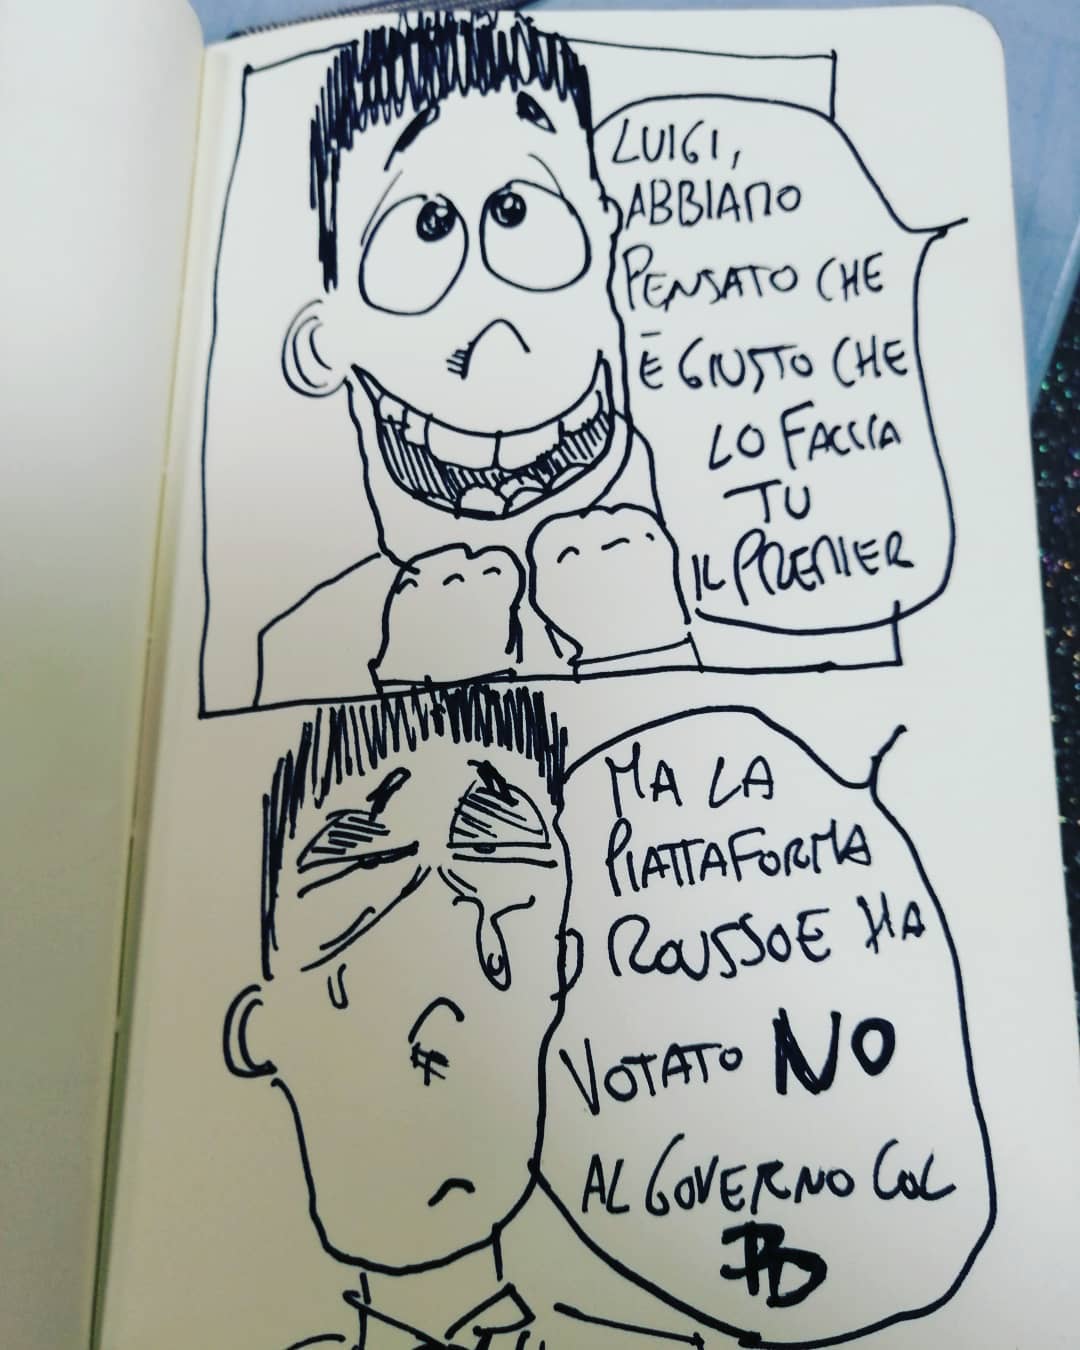 LUIGI,
ABBIAMO
PENSATO CHE
È GIUSTO CHE
LO FACCIA
TU
IL PREMIER
MA LA
PIATTAFORMA
ROUSSOE HA
VOTATO NO
AL GOVERNO COL
PD